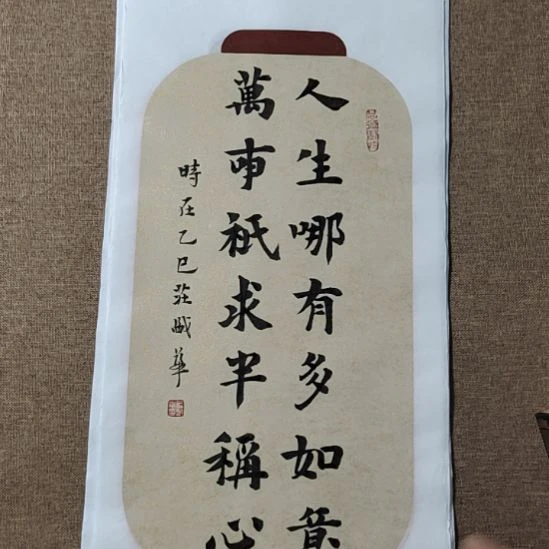 人生哪有多如意
萬事祇求半稱心
時在乙巳莊晟華